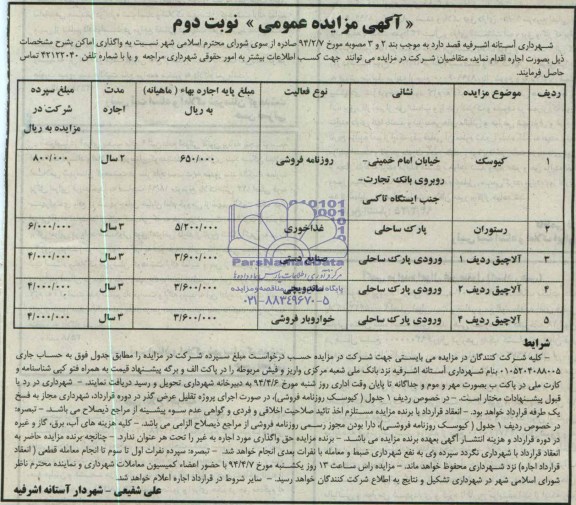 « آگهی مزایده عمومی » نوبت دوم
شهرداری آستانه اشرفیه قصد دارد به موجب بند ۲ و ۳ مصوبه مورخ ۹۴/۲/۷ صادره از سوی شورای محترم اسلامی شهر نسبت به واگذاری اماکن بشرح مشخصات
ذیل بصورت اجاره اقدام نماید، متقاضیان شرکت در مزایده می توانند جهت کسب اطلاعات بیشتر به امور حقوقی شهرداری مراجعه و یا با شماره تلفن ۴۲۱۲۲۰۴۰ تماس
حاصل فرمایند.
ردیف موضوع مزایده نشانی نوع فعالیت مبلغ پایه اجاره بهاء ( ماهیانه) به ریال مدت اجاره مبلغ سپرده شرکت در مزایده به ریال
۱ کیوسک خیابان امام خمینی- روبروی بانک تجارت- جنب ایستگاه تاکسی روزنامه فروشی ۶۵۰/۰۰۰ ۲ سال ۸۰۰/۰۰۰
۲ رستوران پارک ساحلی غذاخوری ۵/۲۰۰/۰۰۰ ۳ سال ۶/۰۰۰/۰۰۰
۳ آلاچیق ردیف ۱ ورودی پارک ساحلی صنایع دستی ۳/۶۰۰/۰۰۰ ۳ سال ۴/۰۰۰/۰۰۰
۴ آلاچیق ردیف ۲ ورودی پارک ساحلی ساندویچی ۳/۶۰۰/۰۰۰ ۳ سال ۴/۰۰۰/۰۰۰
۵ آلاچیق ردیف ۴ ورودی پارک ساحلی خواروبار فروشی ۳/۶۰۰/۰۰۰ ۳ سال ۴/۰۰۰/۰۰۰
ParsNamadData
پایگاه اطلاع رسانی مناقصه و مزایده
۰۲۱-۸۸۳۴۹۶۷۰-۵
شرایط
- کلیه شرکت کنندگان در مزایده می بایستی جهت شرکت در مزایده حسب درخواست مبلغ سپرده شرکت در مزایده را مطابق جدول فوق به حساب جاری
۰۱۰۵۲۰۴۰۸۸۰۰۵ بنام شهرداری آستانه اشرفیه نزد بانک ملی شعبه مرکزی واریز و فیش مربوطه را در پاکت الف و برگه پیشنهاد قیمت به همراه فتو کپی شناسنامه و
کارت ملی در پاکت ب بصورت مهر و موم و جداگانه تا پایان وقت اداری روز شنبه مورخ ۹۴/۴/۶ به دبیرخانه شهرداری تحویل و رسید دریافت نمایند. - شهرداری در رد یا
قبول پیشنهادات مختار است. - در خصوص ردیف ۱ جدول ( کیوسک روزنامه فروشی)، در صورت اجرای پروژه تقلیل عرض گذر در دوره قرارداد، شهرداری مجاز به فسخ
یک طرفه قرارداد خواهد بود. - انعقاد قرارداد با برنده مزایده مستلزم اخذ تائید صلاحیت اخلاقی و فردی و گواهی عدم سوء پیشینه از مراجع ذیصلاح می باشد. - تبصره:
در خصوص ردیف ۱ جدول ( کیوسک روزنامه فروشی)، دارا بودن مجوز رسمی روزنامه فروشی از مراجع ذیصلاح الزامی می باشد. - کلیه هزینه های آب، برق، گاز و غیره
در دوره قرارداد و هزینه انتشار آگهی بعهده برنده مزایده می باشد. - برنده مزایده حق واگذاری مورد اجاره به غیر را تحت هر عنوان ندارد. - چنانچه برنده مزایده حاضر به
انعقاد قرارداد با شهرداری نگردد سپرده وی به نفع شهرداری ضبط و معامله با نفرات بعدی انجام خواهد شد. - تبصره: سپرده نفرات اول تا سوم تا انجام معامله قطعی ( انعقاد
قرارداد اجاره) نزد شهرداری محفوظ خواهد ماند. - مزایده راس ساعت ۱۳ روز یکشنبه مورخ ۹۴/۴/۷ با حضور اعضاء کمیسیون معاملات شهرداری و نماینده محترم ناظر
شورای اسلامی شهر در شهرداری تشکیل و نتایج به اطلاع شرکت کنندگان خواهد رسید. - سایر شروط در قرارداد اجاره اعلام خواهد شد.
علی شفیعی - شهردار آستانه اشرفیه